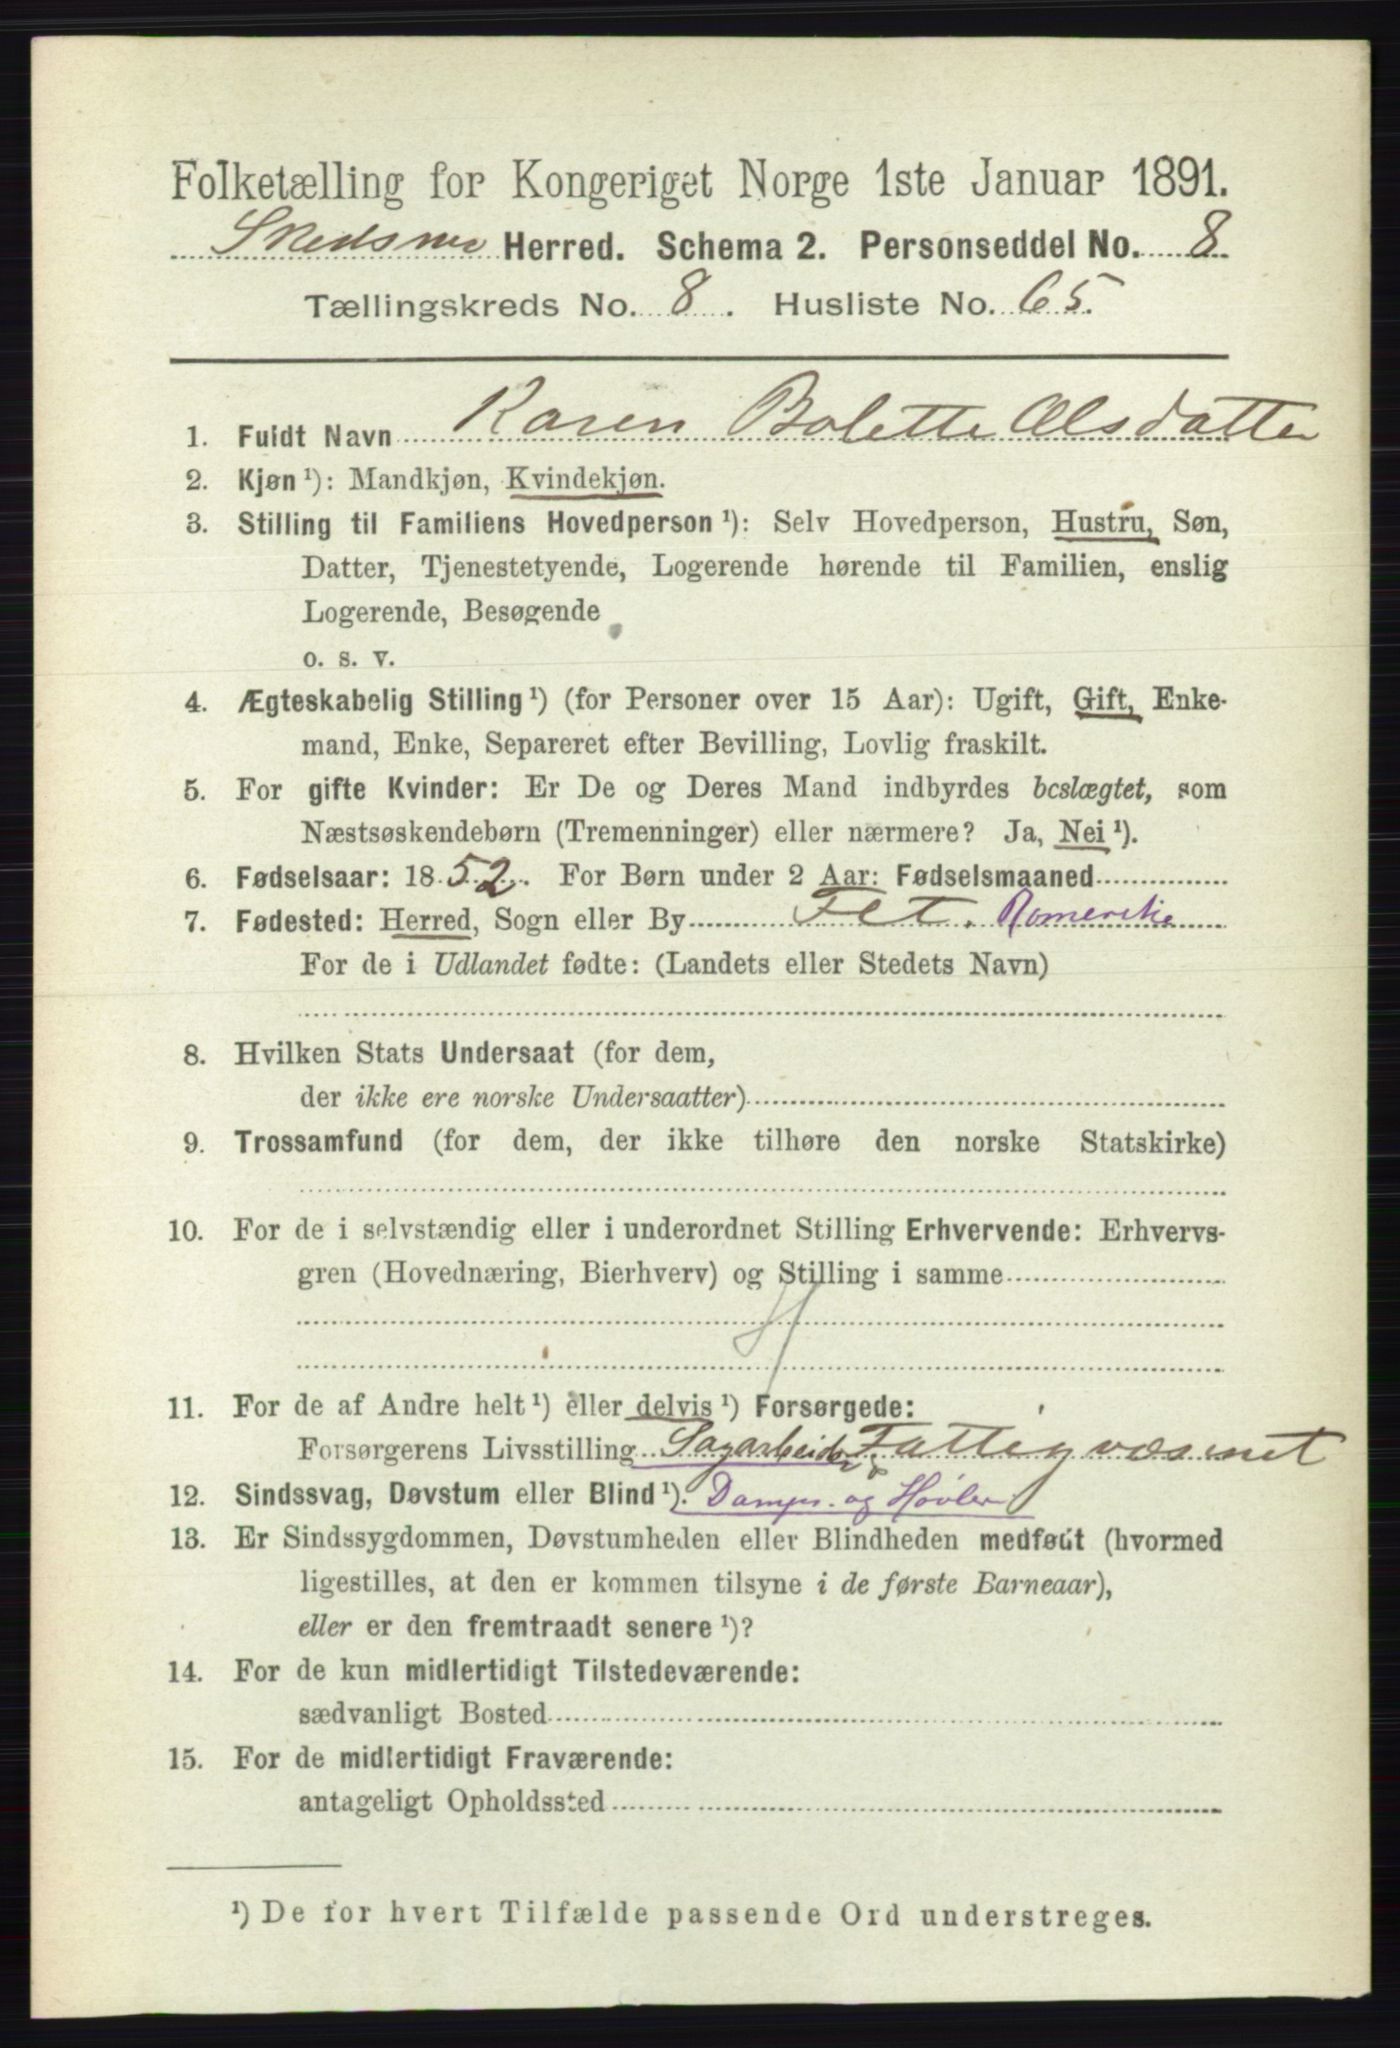 Folketælling for Kongeriget Norge 1ste Januar 1891.
Skedsmo Herred. Schema 2. Personseddel No. 8
Tællingskreds No. 8. Husliste No. 65.
1. Fuldt Navn Karen Bolette Olsdatter
2. Kjøn ¹): Mandkjøn, Kvindekjøn.
3. Stilling til Familiens Hovedperson ¹): Selv Hovedperson, Hustru, Søn,
Datter, Tjenestetyende, Logerende hørende til Familien, enslig
Logerende, Besøgende
o. s. v.
4. Ægteskabelig Stilling ¹) (for Personer over 15 Aar): Ugift, Gift, Enke-
mand, Enke, Separeret efter Bevilling, Lovlig fraskilt.
5. For gifte Kvinder: Er De og Deres Mand indbyrdes beslægtet, som
Næstsøskendebørn (Tremenninger) eller nærmere? Ja, Nei ¹).
6. Fødselsaar: 1852. For Børn under 2 Aar: Fødselsmaaned
7. Fødested: Herred, Sogn eller By Fet. Romerike
For de i Udlandet fødte: (Landets eller Stedets Navn)
8. Hvilken Stats Undersaat (for dem,
der ikke ere norske Undersaatter)
9. Trossamfund (for dem, der ikke tilhøre den norske Statskirke)
10. For de i selvstændig eller i underordnet Stilling Erhvervende: Erhvervs-
gren (Hovednæring, Bierhverv) og Stilling i samme
H
11. For de af Andre helt ¹) eller delvis ¹) Forsørgede:
Forsørgerens Livsstilling Sagarbeider Fattigvæsenet
12. Sindssvag, Døvstum eller Blind ¹). Damps. og Høvleri
13. Er Sindssygdommen, Døvstumheden eller Blindheden medfødt (hvormed
ligestilles, at den er kommen tilsyne i de første Barneaar),
eller er den fremtraadt senere ¹)?
14. For de kun midlertidigt Tilstedeværende:
sædvanligt Bosted
15. For de midlertidigt Fraværende:
antageligt Opholdssted
¹) De for hvert Tilfælde passende Ord understreges.